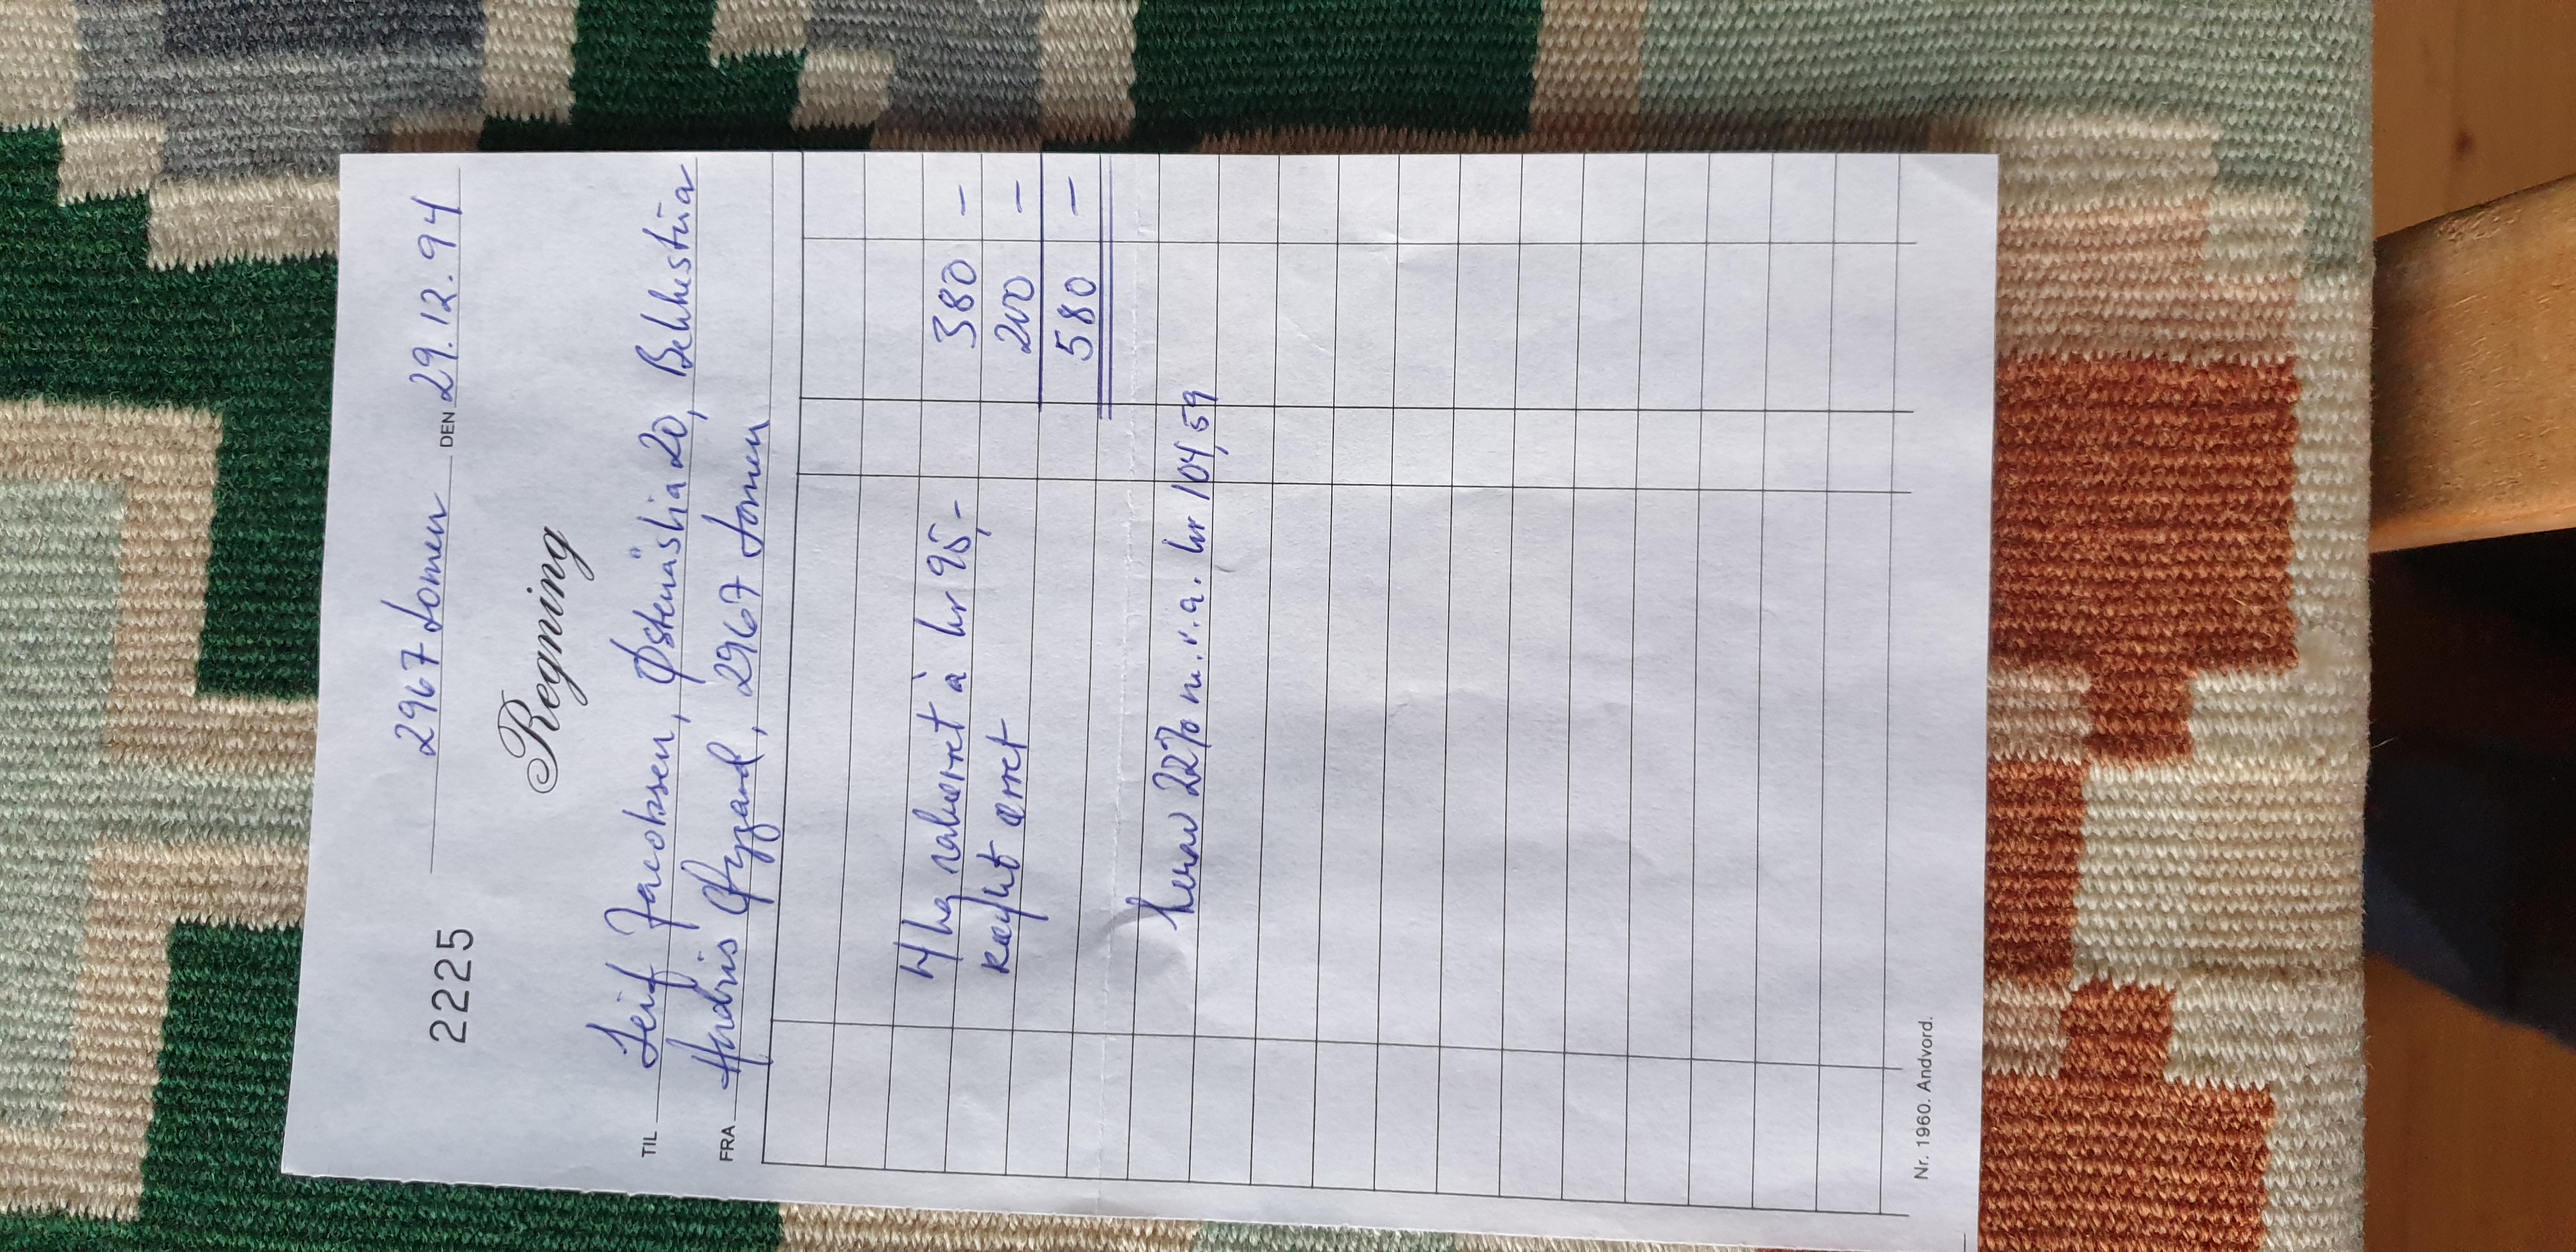 2225 2967 Lomen DEN 29.12.94
Regning
TIL Leif Jacobsen, Østeråslia 20, Bekkestua
FRA Andris Fyzand, 2967 Lomen
4 kg rakørret à kr 95,- 380 -
røykt ørret 200 -
580 -
herav 22% m.v.a. kr 104,59
Nr. 1960. Andvord.